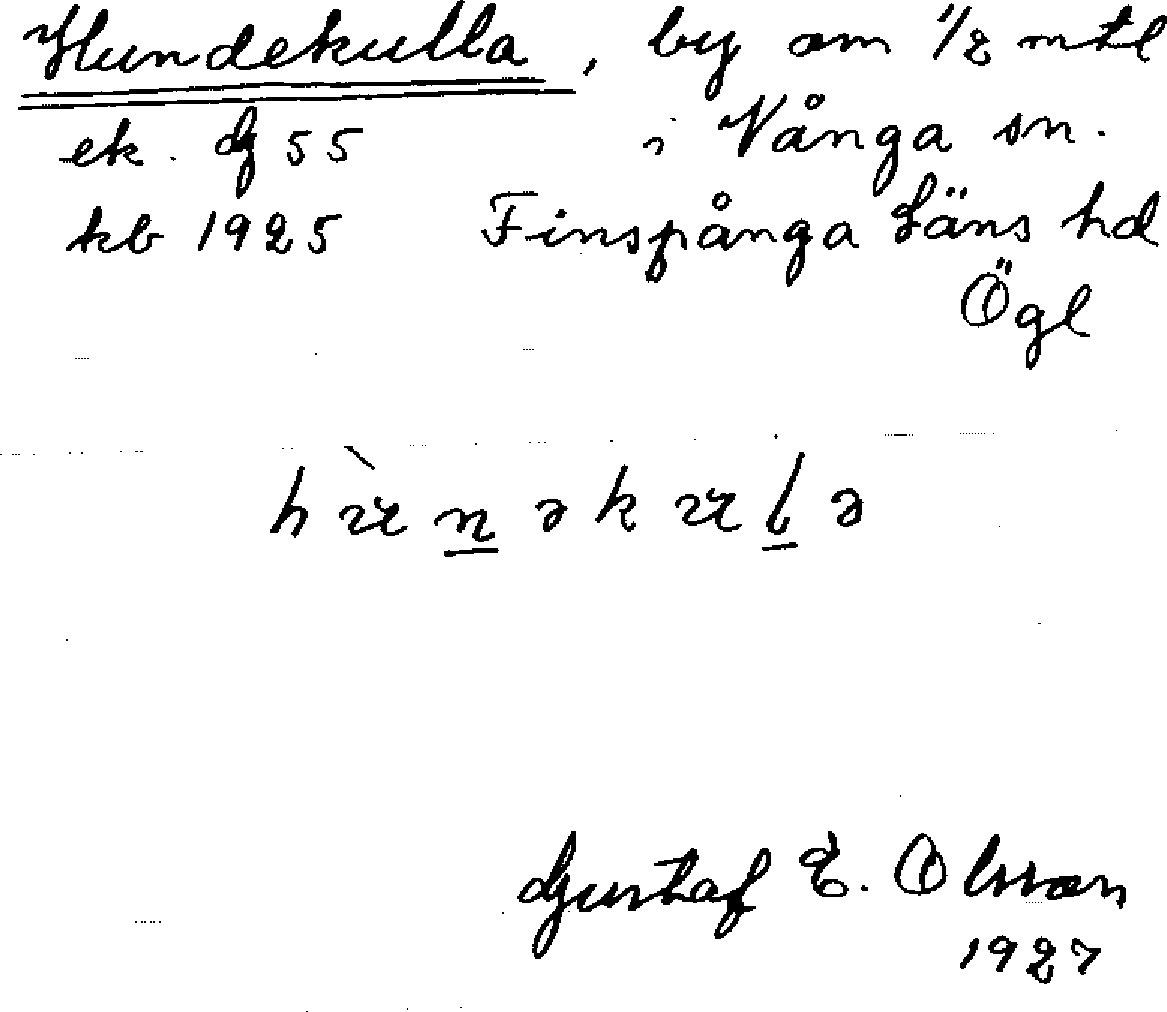 Hundekulla, by om 1/2 mtl
ek. G 55 i Vånga sn.
kb 1925 Finspånga Läns hd
Ögl
hùnəkulə
Gustaf E. Olsson
1927